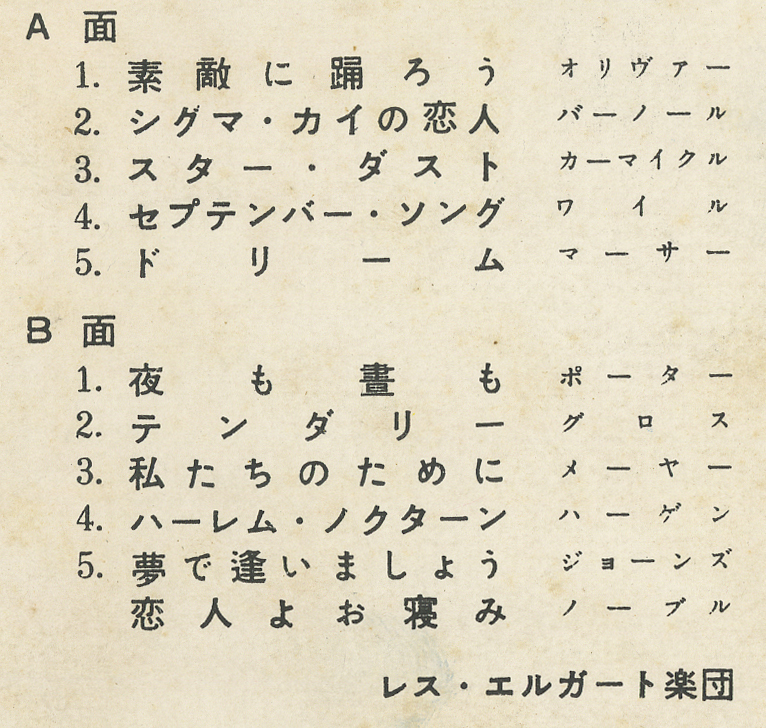 A 面
1. 素敵に踊ろう オリヴァー
2. シグマ・カイの恋人 バーノール
3. スター・ダスト カーマイクル
4. セプテンバー・ソング ワイル
5. ドリーム マーサー
B 面
1. 夜も晝も ポーター
2. テンダリー グロス
3. 私たちのために メーヤー
4. ハーレム・ノクターン ハーゲン
5. 夢で逢いましょう ジョーンズ
恋人よお寝み ノーブル
レス・エルガート楽団